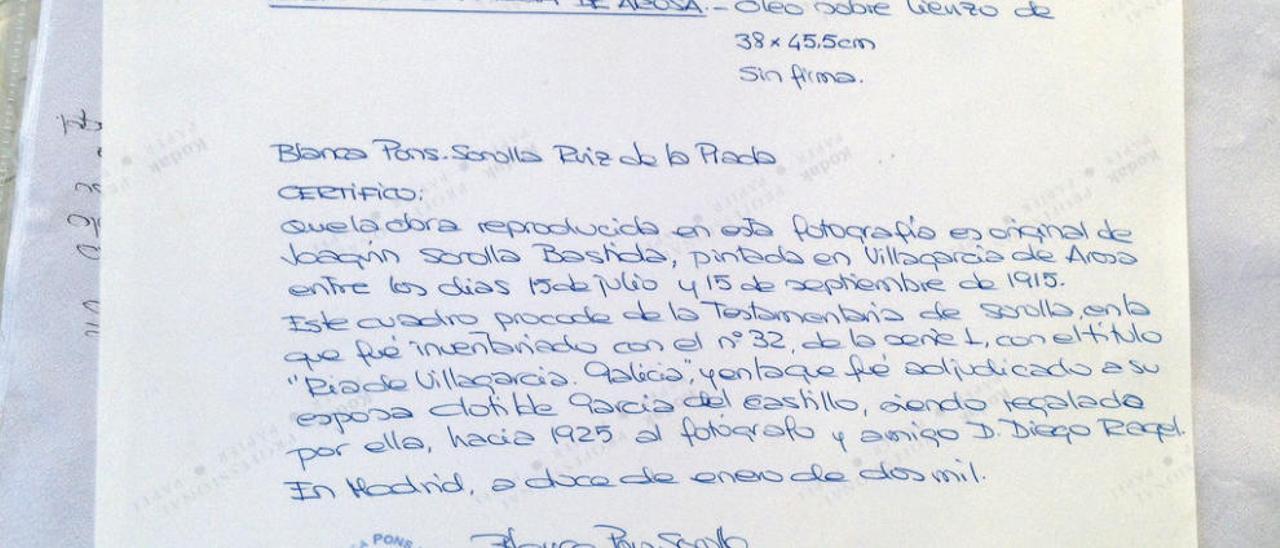 DE AROSA.- Óleo sobre lienzo de
38 x 45.5cm
Sin firma.
Blanca Pons-Sorolla Ruiz de la Prada
CERTIFICO:
Que la obra reproducida en esta fotografía es original de
Joaquín Sorolla Bastida, pintada en Villagarcía de Arosa
entre los días 15 de julio y 15 de septiembre de 1915.
Este cuadro procede de la Testamentaria de Sorolla, en la
que fué inventariado con el nº 32, de la serie L, con el título
"Ría de Villagarcía. Galicia", y en la que fué adjudicado a su
esposa Clotilde García del Castillo, siendo regalado
por ella, hacia 1925 al fotógrafo y amigo D. Diego Ragel.
En Madrid, a doce de enero de dos mil.
PONS
Blanca Pons Sorolla